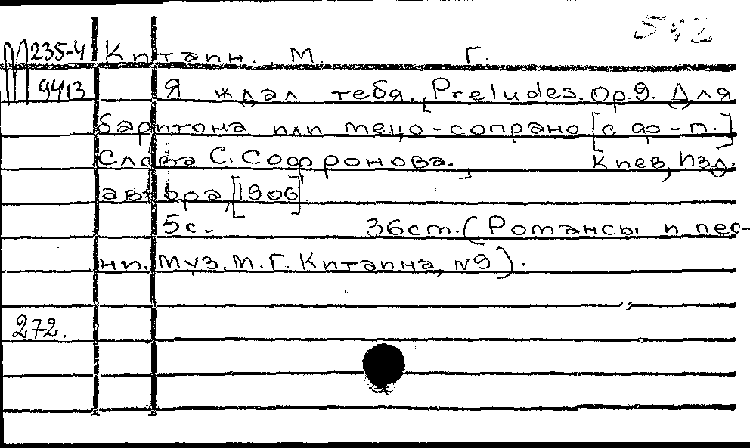 542
М 235-4 Китаин. М. Г.
9413 Я ждал тебя. [Preludes. Op.9. Для
баритона или меццо-сопрано [с ф-п.]
Слова С. Софронова. Киев, Изд.
автора, [1906]
5с. 36ст. (Романсы и пес-
ни. Муз. М. Г. Китаина, №9).
272.